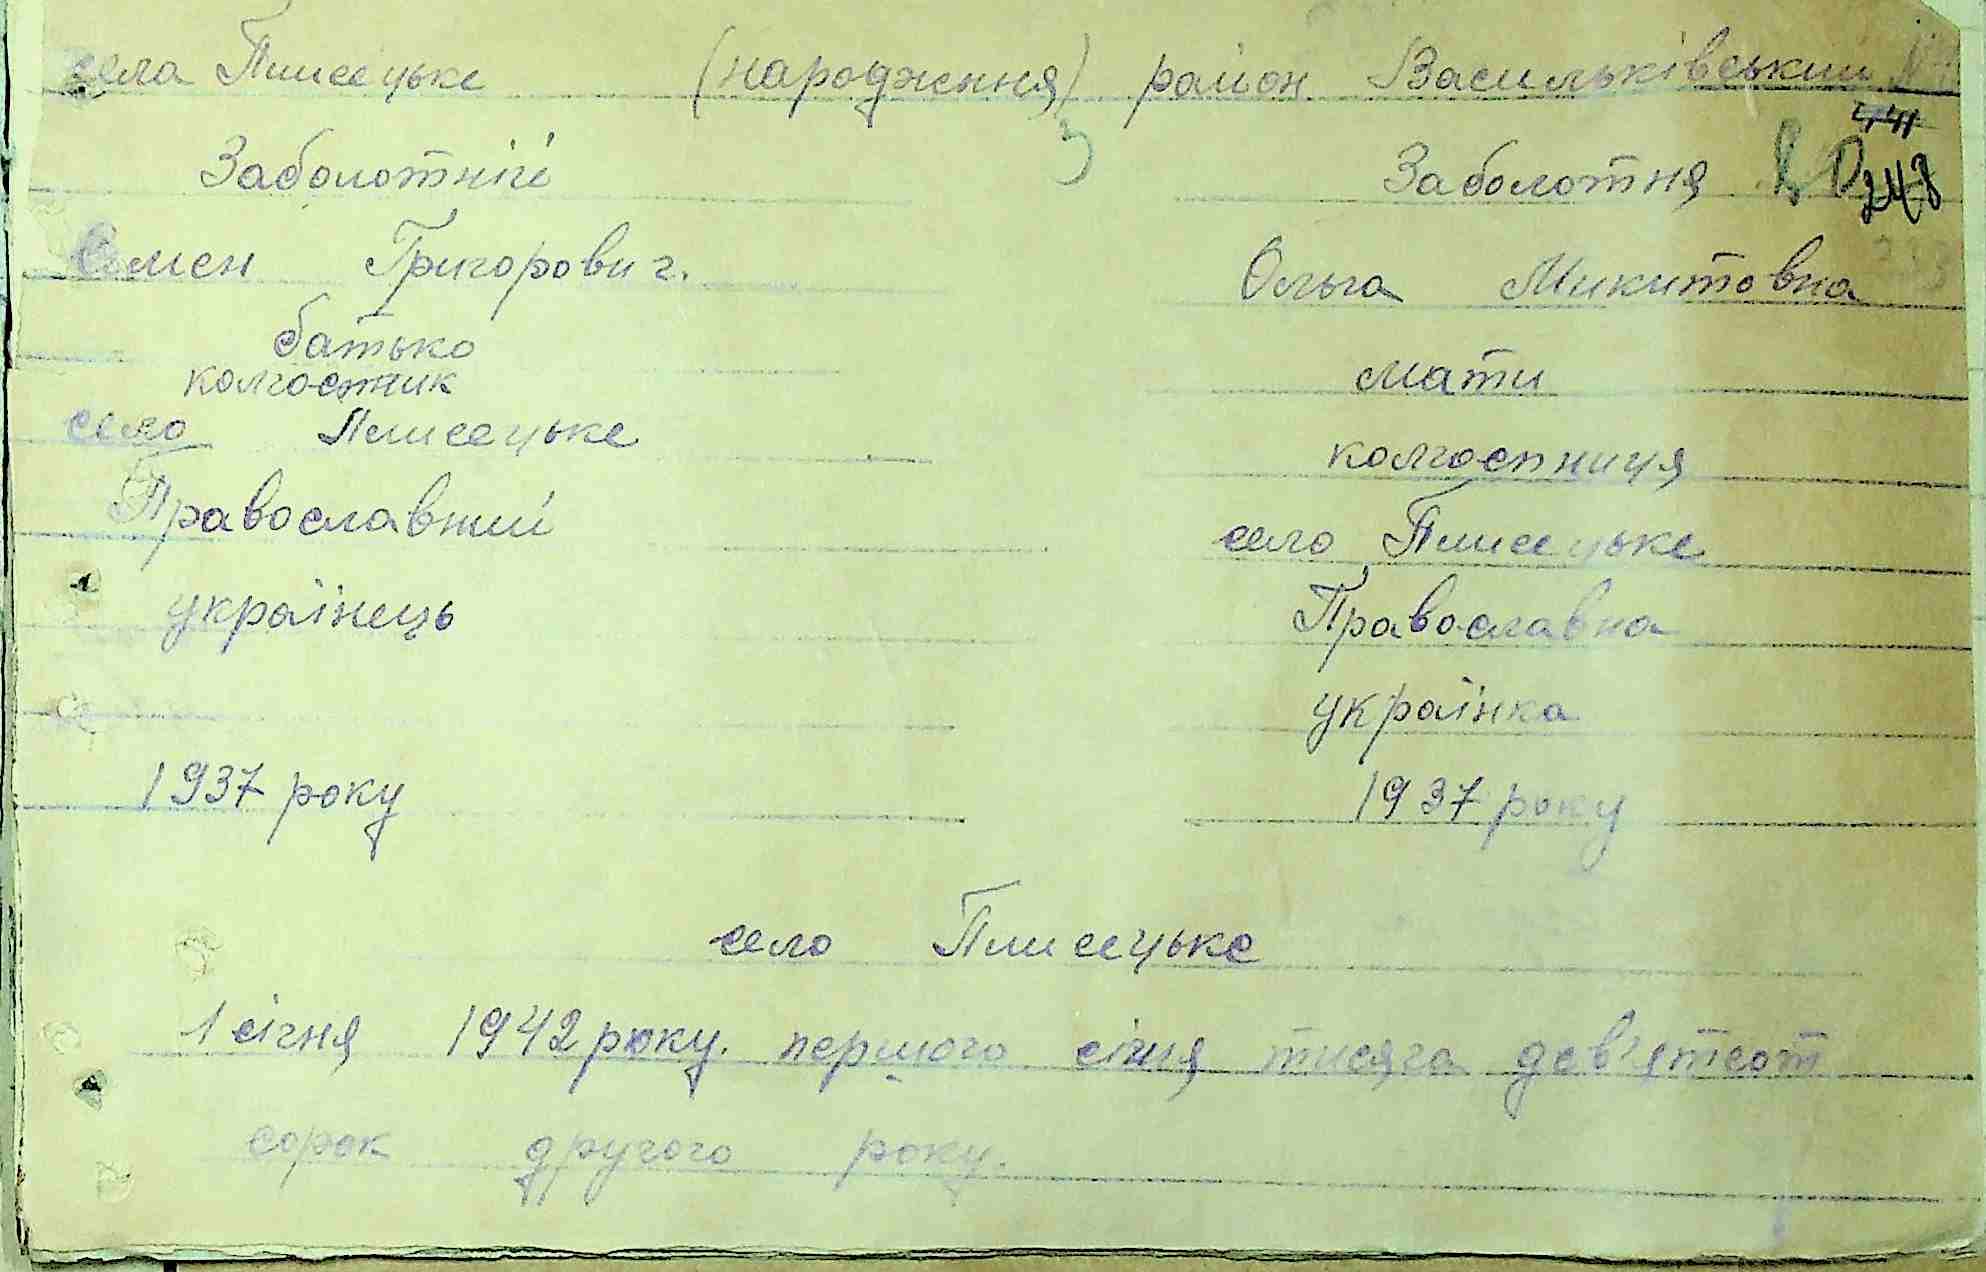 села Плисецьке (народження) район Васильківський №
441
Заболотній Заболотня 248
Семен Григорович. Ольга Микитовна
батько мати
колгоспник колгоспниця
село Плисецьке село Плисецьке
Православний Православна
українець українка
1937 року 1937 року
село Плисецьке
1 січня 1942 року. першого січня тисяча дев'ятсот
сорок другого року.